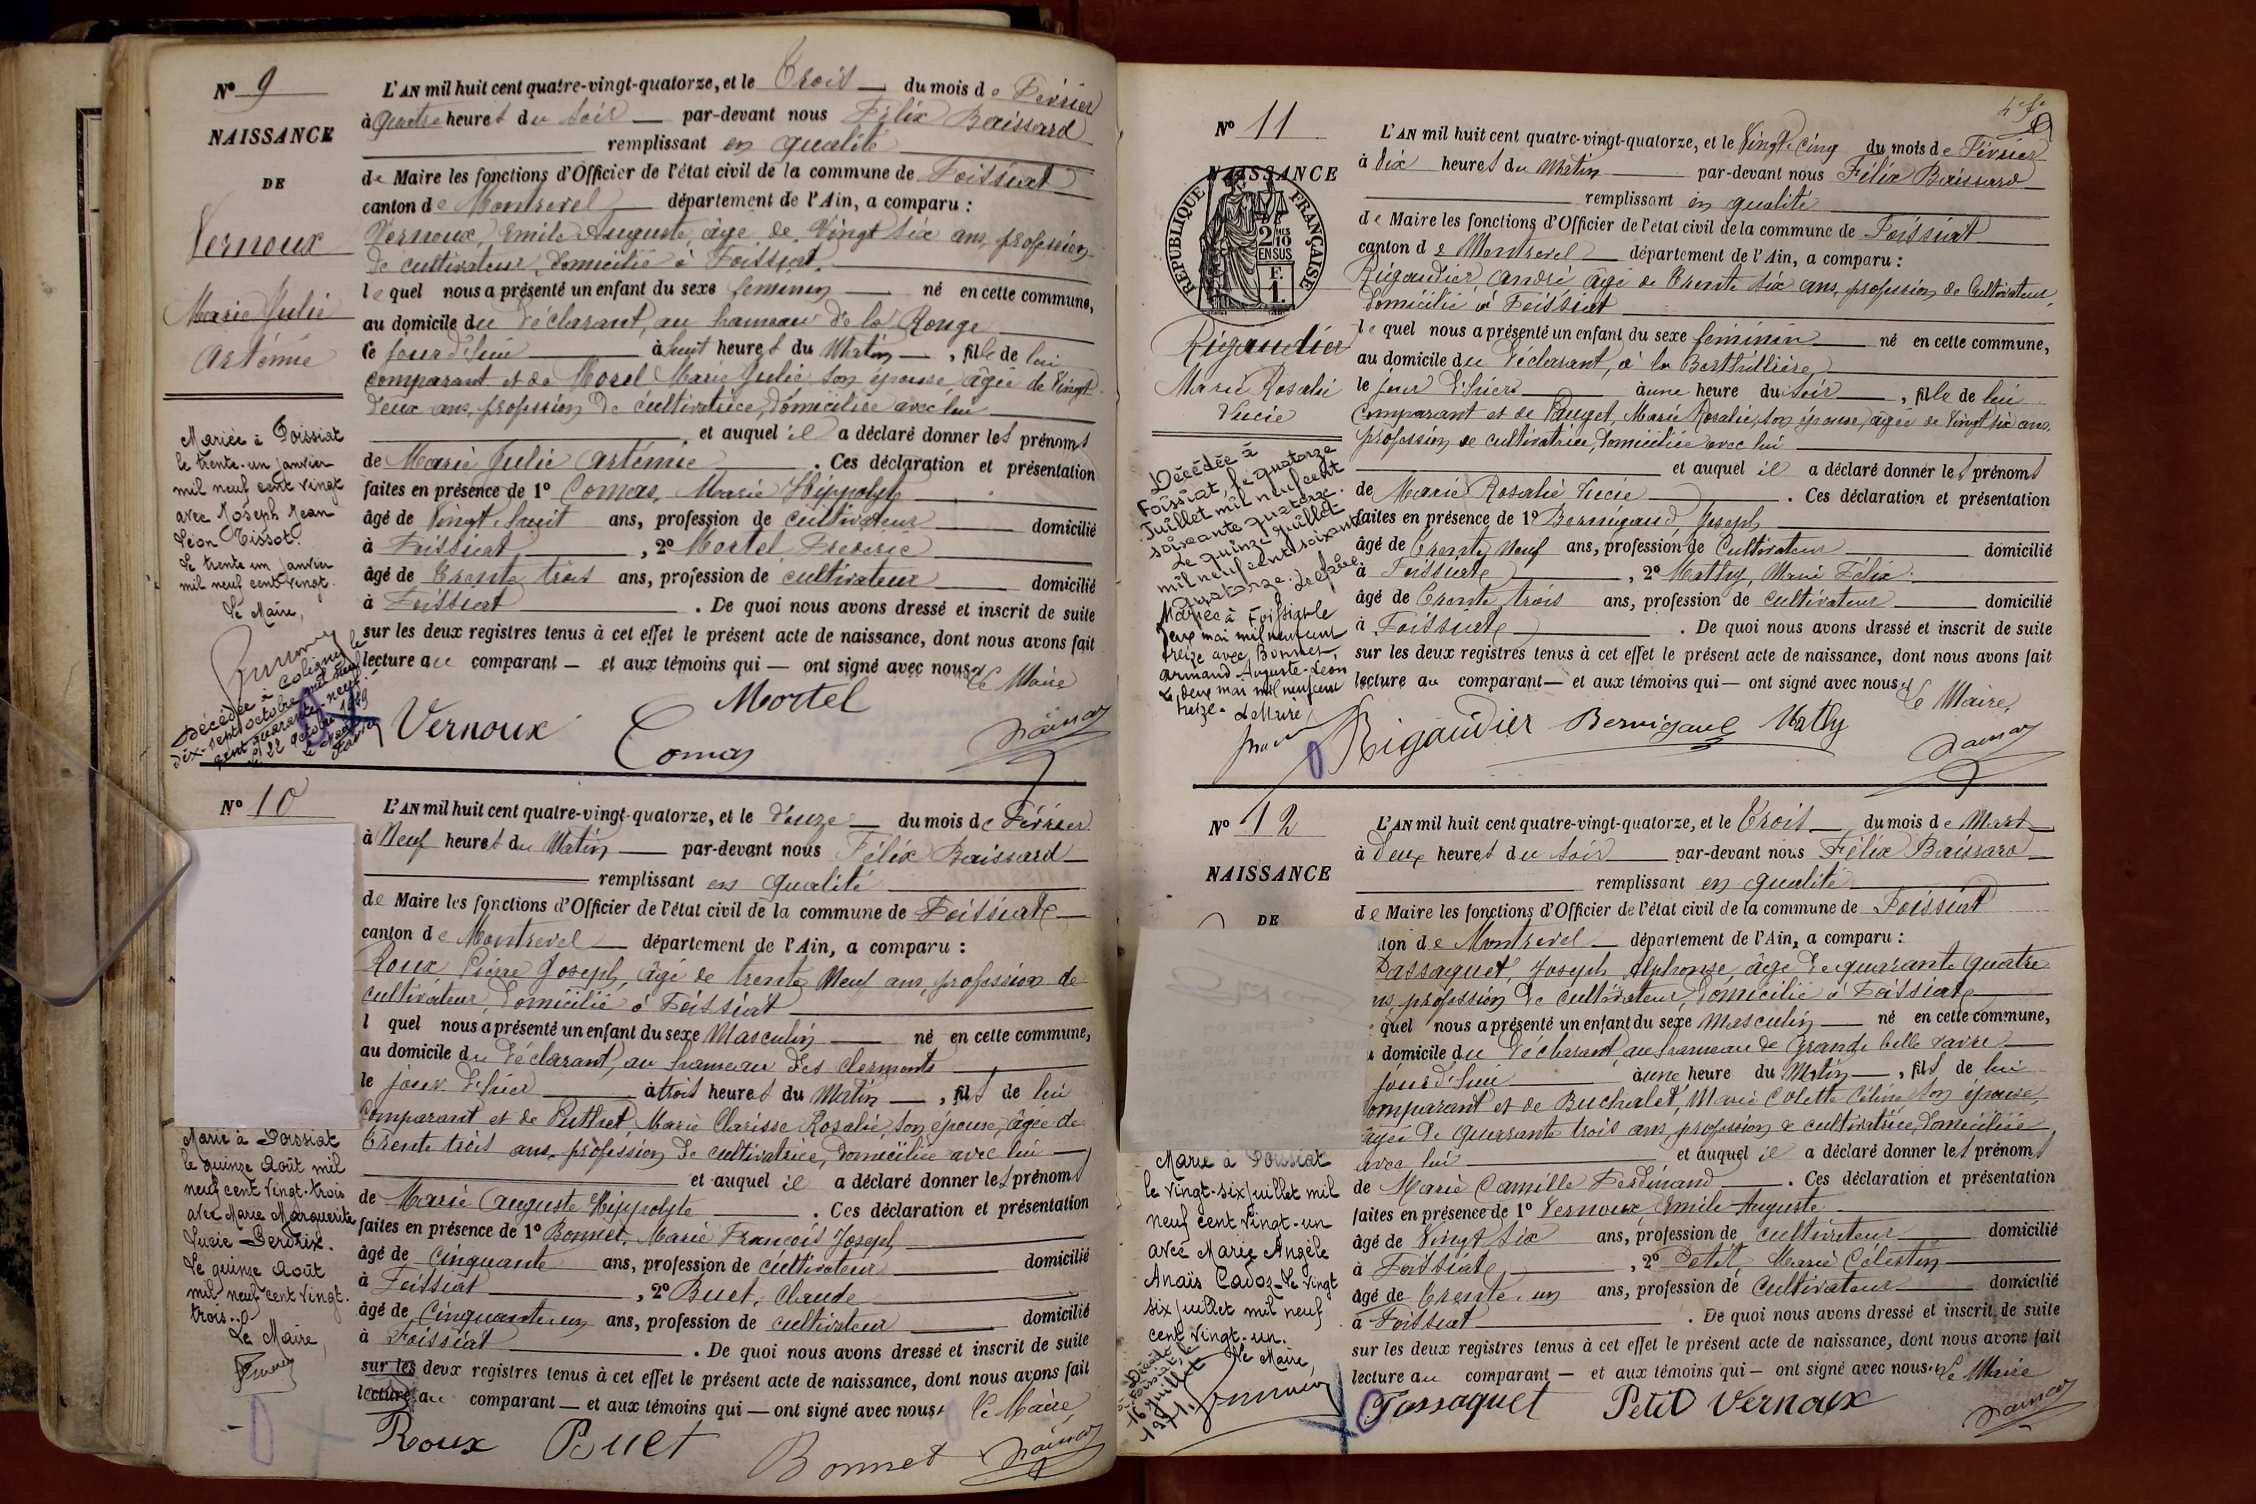 N° 9
NAISSANCE
DE
Vernoux
Marie Julie
Artémie
Mariée à Foissiat
le trente-un janvier
mil neuf cent vingt
avec Joseph Jean
Léon Tissot.
Le trente un janvier
mil neuf cent vingt.
Le Maire,
Décédée à Coligny le
dix-sept octobre mil neuf
cent quarante-neuf.
le 22 octobre 1949
L'AN mil huit cent quatre-vingt-quatorze, et le Trois du mois de Février
à Quatre heures du soir par-devant nous Félix Baissard
remplissant en qualité
de Maire les fonctions d'Officier de l'état civil de la commune de Foissiat
canton de Montrevel département de l'Ain, a comparu :
Vernoux, Emile Auguste, âgé de Vingt six ans, profession
de cultivateur, domicilié à Foissiat.
lequel nous a présenté un enfant du sexe féminin né en cette commune,
au domicile du déclarant, au hameau de la Rouge
ce jourd'hui à huit heures du Matin, fille de lui
comparant et de Morel Marie Julie, son épouse, âgée de Vingt
deux ans, profession de cultivatrice, domiciliée avec lui
et auquel il a déclaré donner les prénoms
de Marie Julie Artémie. Ces déclaration et présentation
faites en présence de 1° Comas, Marie Hippolyte
âgé de Vingt huit ans, profession de cultivateur domicilié
à Foissiat, 2° Mortel Frédéric
âgé de Trente trois ans, profession de cultivateur domicilié
à Foissiat. De quoi nous avons dressé et inscrit de suite
sur les deux registres tenus à cet effet le présent acte de naissance, dont nous avons fait
lecture au comparant — et aux témoins qui — ont signé avec nous.
Le Maire
Mortel
Vernoux
Comas
N° 10
Marié à Foissiat
le quinze Août mil
neuf cent vingt-trois
avec Marie Marguerite
Lucie Perdrix.
Le quinze Août
mil neuf cent vingt-
trois.
Le Maire,
L'AN mil huit cent quatre-vingt-quatorze, et le douze du mois de Février
à Neuf heures du Matin par-devant nous Félix Baissard
remplissant en qualité
de Maire les fonctions d'Officier de l'état civil de la commune de Foissiat
canton de Montrevel département de l'Ain, a comparu :
Roux Pierre Joseph, âgé de trente Neuf ans, profession de
cultivateur, domicilié à Foissiat
l quel nous a présenté un enfant du sexe Masculin né en cette commune,
au domicile du déclarant, au hameau des Clermonts
le jour d'hier à trois heures du Matin, fils de lui
comparant et de Puthet Marie Clarisse Rosalie, son épouse, âgée de
Trente trois ans, profession de cultivatrice, domiciliée avec lui
et auquel il a déclaré donner les prénoms
de Marie Auguste Hippolyte. Ces déclaration et présentation
faites en présence de 1° Bonnet, Marie François Joseph
âgé de Cinquante ans, profession de cultivateur domicilié
à Foissiat, 2° Buet, Claude
âgé de Cinquante un ans, profession de cultivateur domicilié
à Foissiat. De quoi nous avons dressé et inscrit de suite
sur les deux registres tenus à cet effet le présent acte de naissance, dont nous avons fait
lecture au comparant — et aux témoins qui — ont signé avec nous.
Le Maire,
Roux Buet Bonnet
N° 11
NAISSANCE
DE
RÉPUBLIQUE FRANÇAISE
2 10MES
EN SUS
F.
1.
Rigaudier
Marie Rosalie
Lucie
Décédée à
Foissiat, le quatorze
Juillet mil neuf cent
soixante quatorze.
Le quinze Juillet
mil neuf cent soixante
quatorze.
Mariée à Foissiat le
deux mai mil neuf cent
treize avec Bonnet
Armand-Auguste-Léon
Le deux mai mil neuf cent
treize.
Le Maire
L'AN mil huit cent quatre-vingt-quatorze, et le Vingt cinq du mois de Février
à dix heures du Matin par-devant nous Félix Baissard
remplissant en qualité
de Maire les fonctions d'Officier de l'état civil de la commune de Foissiat
canton de Montrevel département de l'Ain, a comparu :
Rigaudier André âgé de Trente six ans, profession de Cultivateur,
domicilié à Foissiat
lequel nous a présenté un enfant du sexe féminin né en cette commune,
au domicile du déclarant, à la Berthillière
le jour d'hier à une heure du soir, fille de lui
comparant et de Pauget, Marie Rosalie, son épouse, âgée de Vingt six ans,
profession de cultivatrice, domiciliée avec lui
et auquel il a déclaré donner les prénoms
de Marie Rosalie Lucie. Ces déclaration et présentation
faites en présence de 1° Bernigaud, Joseph
âgé de Trente Neuf ans, profession de Cultivateur domicilié
à Foissiat, 2° Mathy, Marie Félix
âgé de Trente trois ans, profession de cultivateur domicilié
à Foissiat. De quoi nous avons dressé et inscrit de suite
sur les deux registres tenus à cet effet le présent acte de naissance, dont nous avons fait
lecture au comparant — et aux témoins qui — ont signé avec nous.
Le Maire,
Rigaudier Bernigaud Mathy
N° 12
NAISSANCE
DE
Marié à Foissiat
le vingt-six juillet mil
neuf cent vingt-un
avec Marie Angèle
Anaïs Cadoz. Le vingt
six juillet mil neuf
cent vingt-un.
Le Maire,
Décédé
à Foissiat, le
16 juillet
L'AN mil huit cent quatre-vingt-quatorze, et le Trois du mois de Mars
à deux heures du soir par-devant nous Félix Baissard
remplissant en qualité
de Maire les fonctions d'Officier de l'état civil de la commune de Foissiat
ton de Montrevel département de l'Ain, a comparu :
Passaquet, Joseph Alphonse, âgé de quarante quatre
ns profession de cultivateur, domicilié à Foissiat
quel nous a présenté un enfant du sexe Masculin né en cette commune,
domicile du déclarant, au hameau de Grande belle vavre
jourd'hui à une heure du Matin, fils de lui
omparant et de Buchalet, Marie Colette Céline son épouse,
âgée de quarante trois ans, profession de cultivatrice, domiciliée
avec lui et auquel il a déclaré donner les prénoms
de Marie Camille Ferdinand. Ces déclaration et présentation
faites en présence de 1° Vernoux Emile Auguste
âgé de Vingt six ans, profession de cultivateur domicilié
à Foissiat, 2° Petit, Marie Célestin
âgé de Trente un ans, profession de Cultivateur domicilié
à Foissiat. De quoi nous avons dressé et inscrit de suite
sur les deux registres tenus à cet effet le présent acte de naissance, dont nous avons fait
lecture au comparant — et aux témoins qui — ont signé avec nous.
Le Maire
Passaquet Petit Vernoux